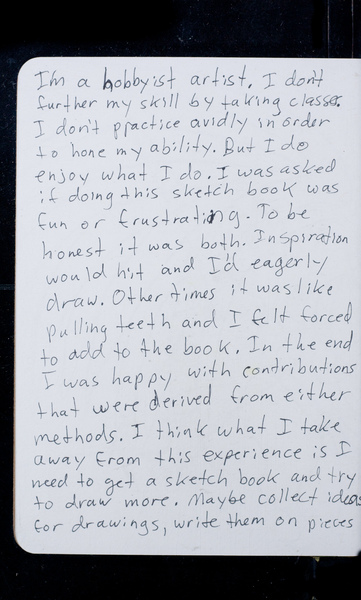 I'm a hobbyist artist. I don't
further my skill by taking classes.
I don't practice avidly in order
to hone my ability. But I do
enjoy what I do. I was asked
if doing this sketch book was
fun or frustrating. To be
honest it was both. Inspiration
would hit and I'd eagerly
draw. Other times it was like
pulling teeth and I felt forced
to add to the book. In the end
I was happy with contributions
that were derived from either
methods. I think what I take
away from this experience is I
need to get a sketch book and try
to draw more. Maybe collect ideas
for drawings, write them on pieces